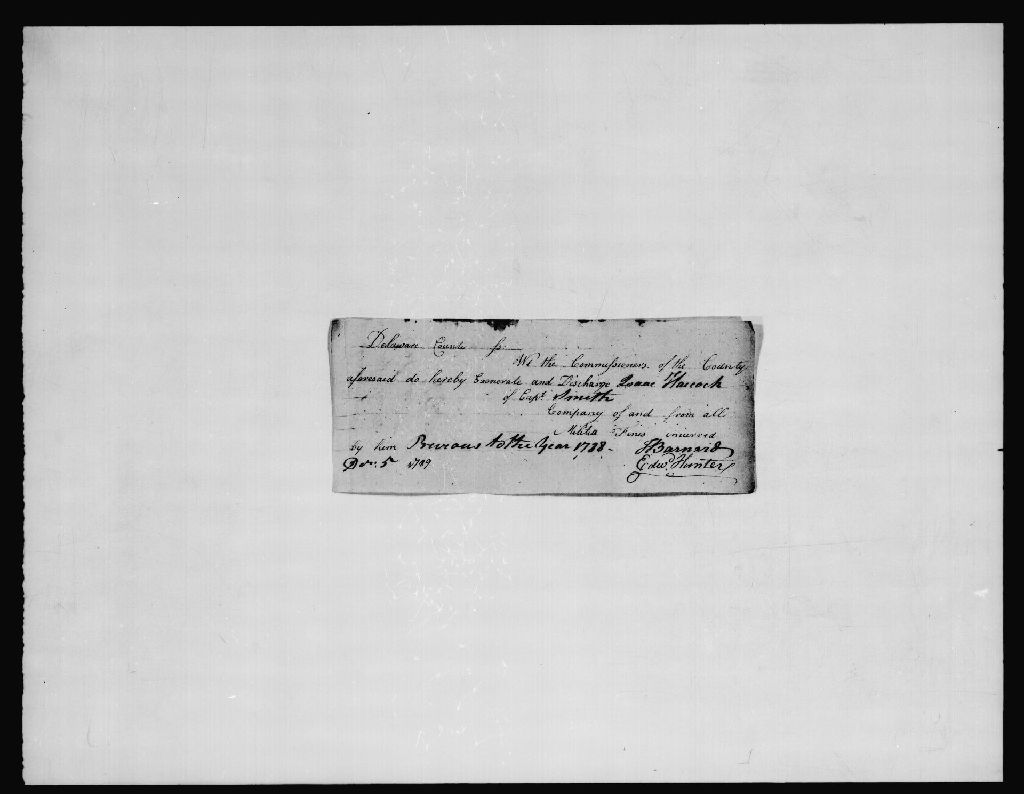 Delaware County ss.
We the Commissioners of the County
aforesaid do hereby Exonerate and Discharge Isaac
of Capt. Smith
Company of and from all
Militia Fines incurred
by him Previous to the Year 1788. J Barnard
Decr. 5 1789 Edwd. Hunter